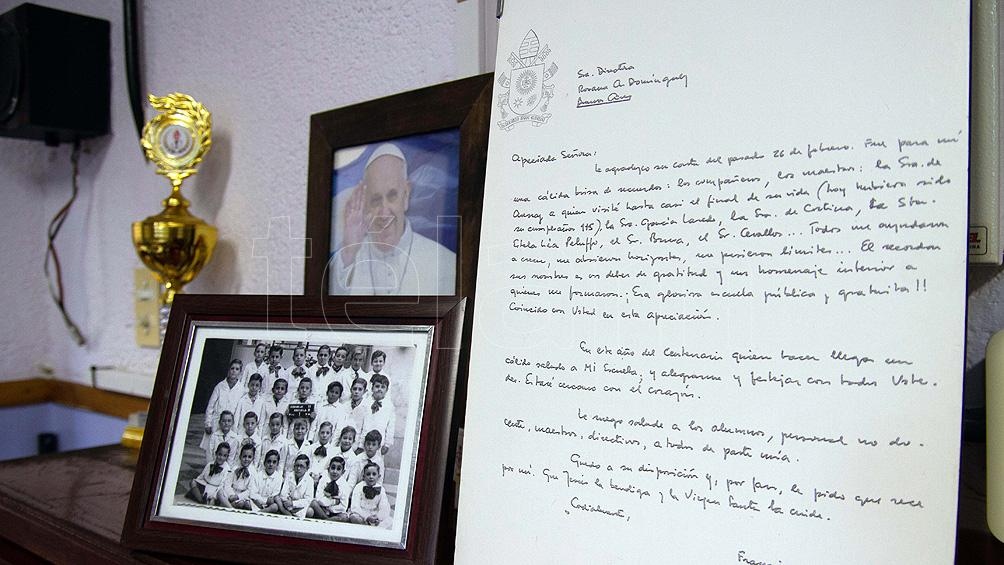 Sra. Directora
Rosana A. Domínguez
Buenos Aires
Apreciada Señora:
le agradezco su carta del pasado 26 de febrero. Fue para mí
una cálida brisa de recuerdos: los compañeros, los maestros: la Sra. de
a quien visité hasta casi el final de su vida (hoy hubiera sido
su cumpleaños 115), la Sra. García Laredo, la Sra. de Cortina, la Sta.
Stela Lía Peluffo, el Sr. Bruna, el Sr. Cevallos... Todos me ayudaron
a crecer, me abrieron horizontes, me pusieron límites... El recordar
sus nombres es un deber de gratitud y un homenaje interior a
quienes me formaron. ¡Esa gloriosa escuela pública y gratuita!!
Coincido con Usted en esta apreciación.
En este año del Centenario quiero hacer llegar un
cálido saludo a Mi Escuela, y alegrarme y festejar con todos Uste-
des. Estaré cercano con el corazón.
Le ruego salude a los alumnos, personal no do-
cente, maestros, directivos, a todos de parte mía.
Quedo a su disposición y, por favor, le pido que rece
por mí. Que Jesús la bendiga y la Virgen Santa la cuide.
Cordialmente,
telam